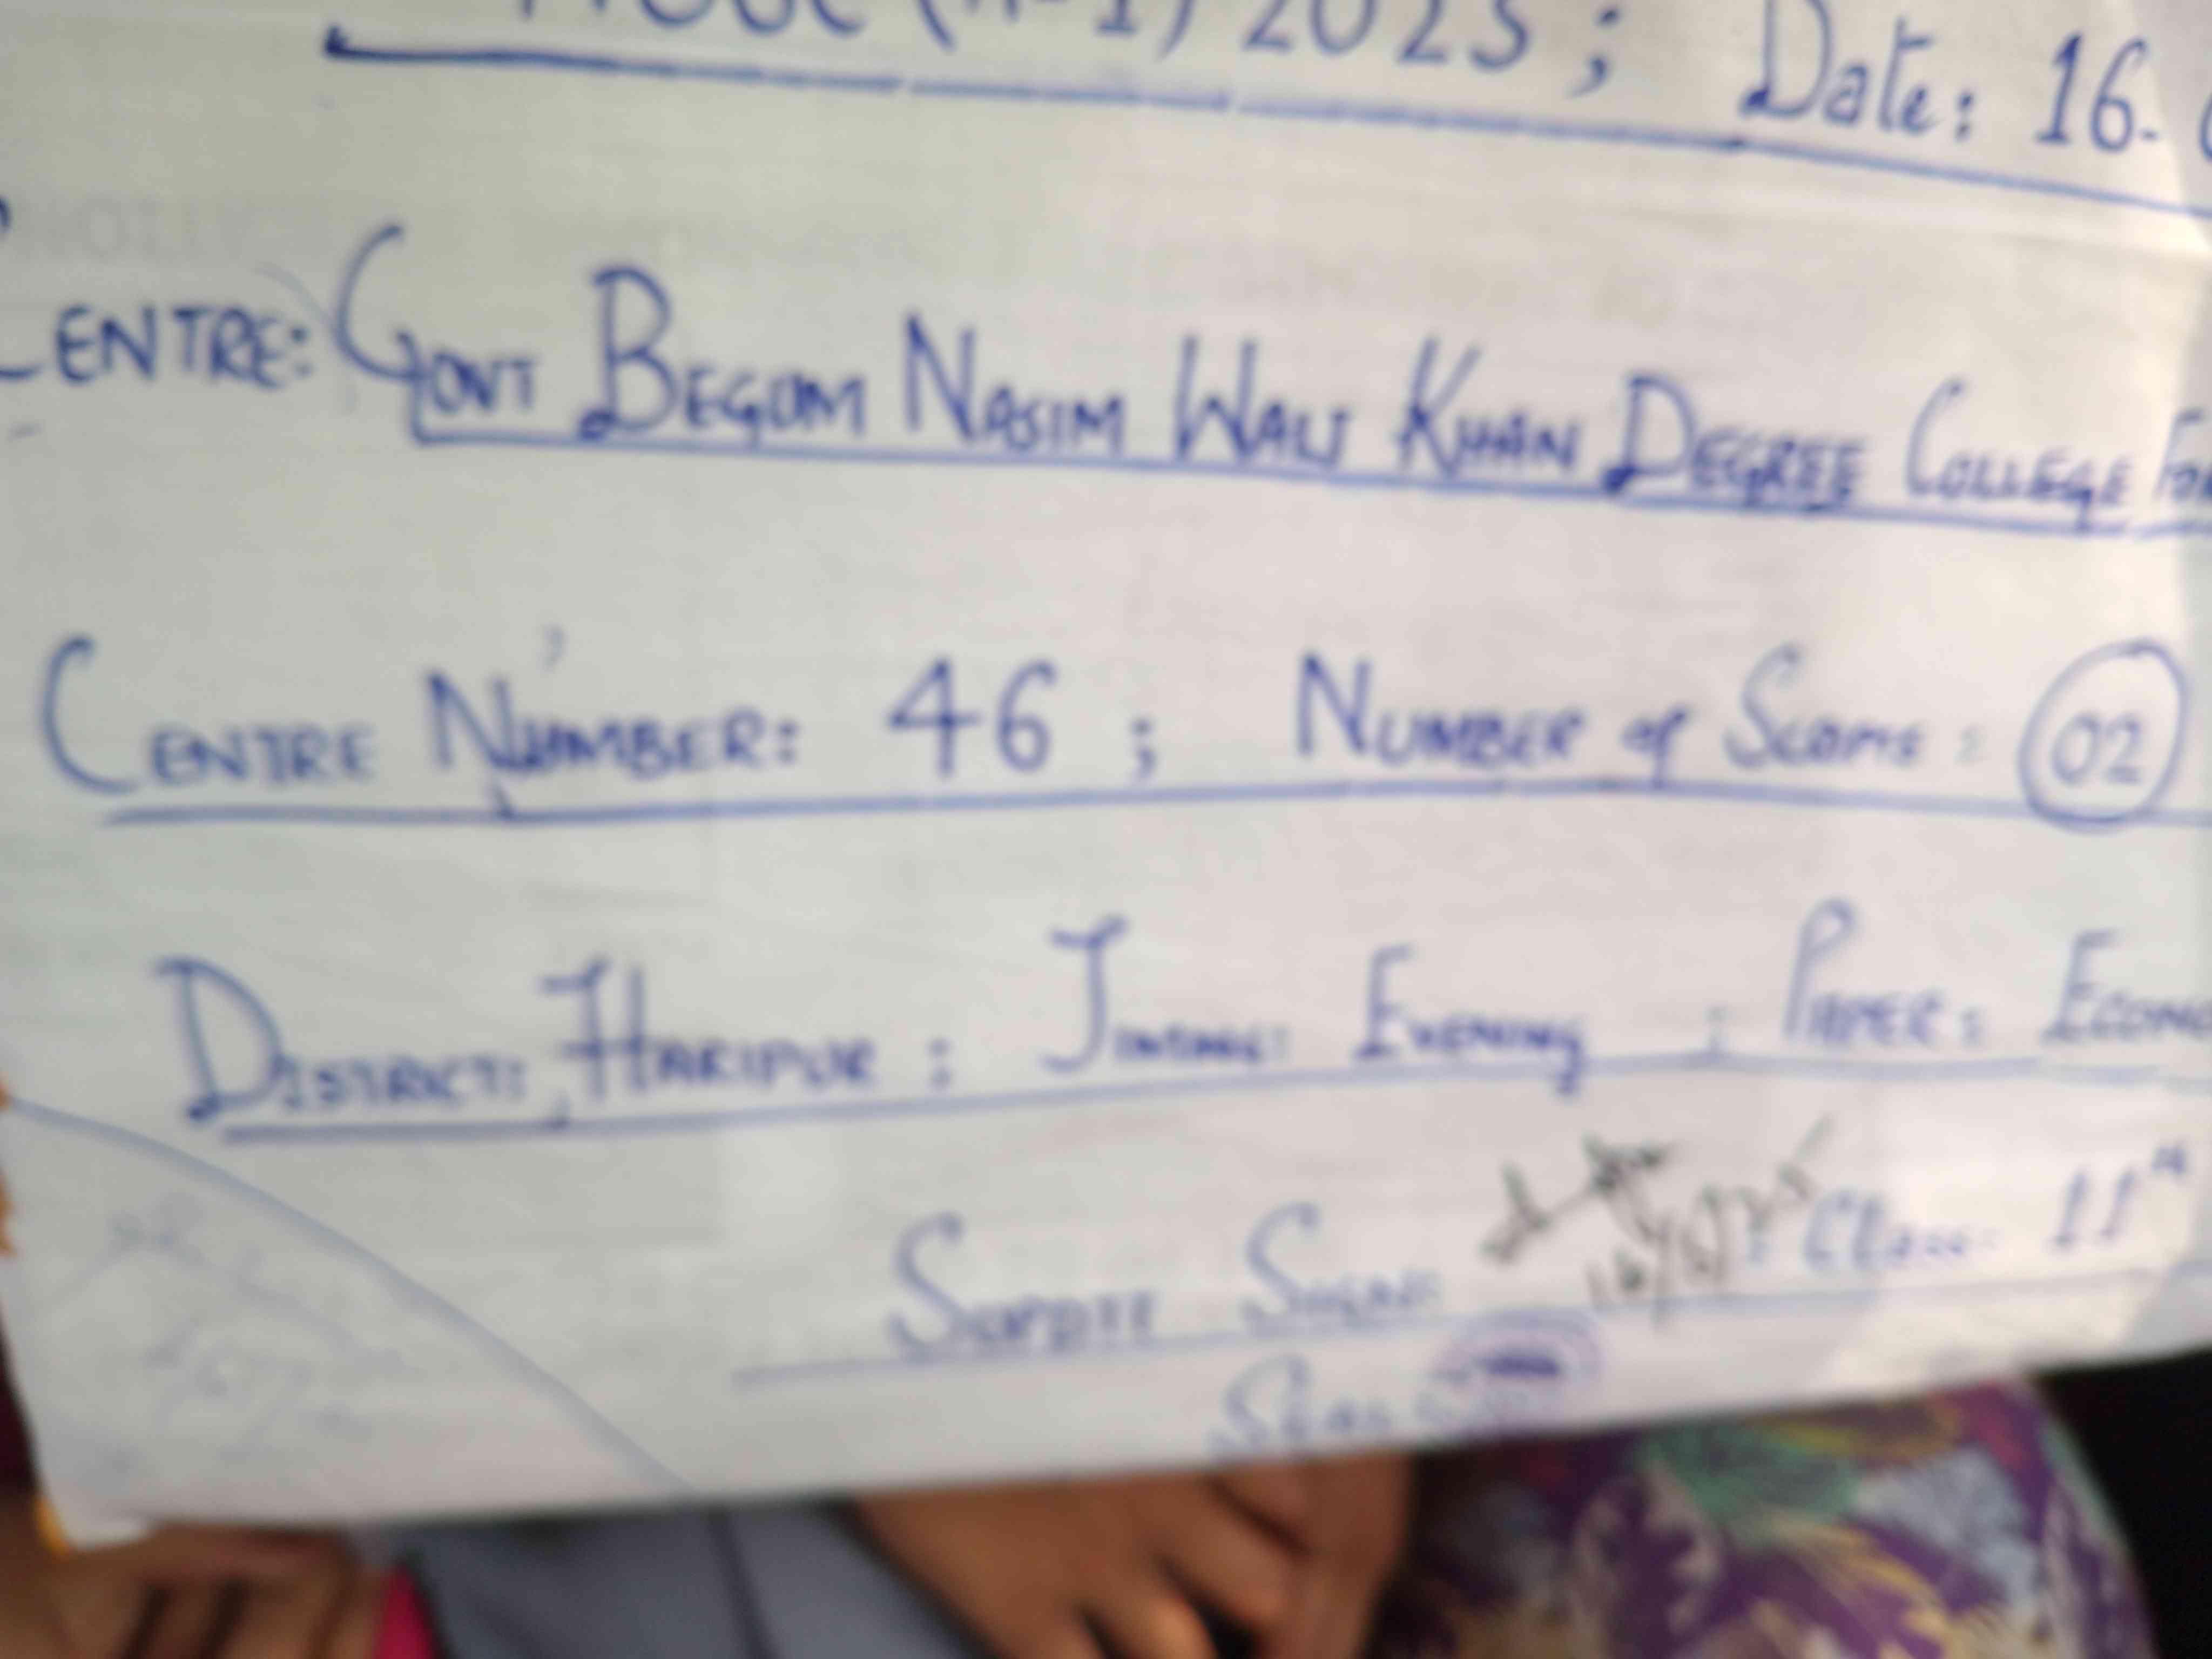 (A-1) 2025 ; Date: 16-
CENTRE: GOVT BEGUM NASIM WALI KHAN DEGREE COLLEGE FOR
CENTRE NUMBER: 46 ; NUMBER of : 02
DISTRICT: HARIPUR : TIMING: EVENING ; PAPER: ECONO
SUPDTT SIGN: 16/5/25 : Class: 11th
SEAL